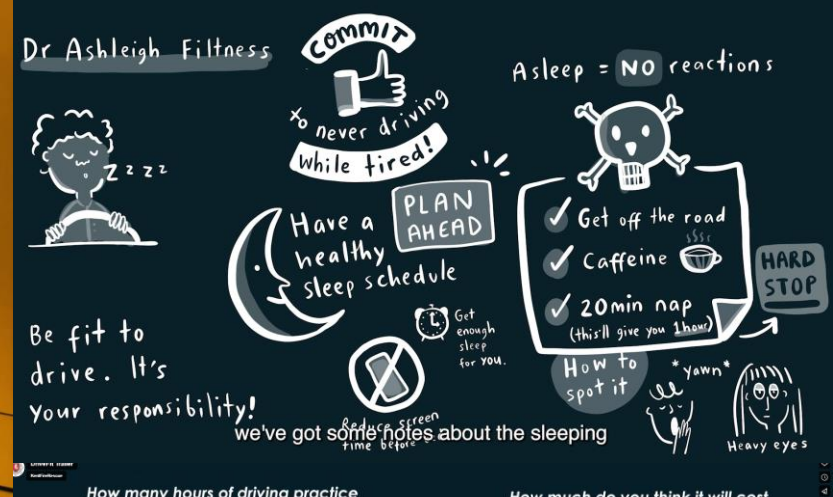 Dr Ashleigh Filtness
COMMIT
to never driving
while tired!
zzzz
Be fit to
drive. It's
your responsibility!
Have a
healthy
sleep schedule
PLAN
AHEAD
Get
enough
sleep
for you.
Reduce screen
time before
Asleep = NO reactions
Get off the road
Caffeine
20min nap
(this'll give you 1hour)
HARD
STOP
How to
spot it
*yawn*
Heavy eyes
we've got some notes about the sleeping
How many hours of driving practice
How much do you think it will cost